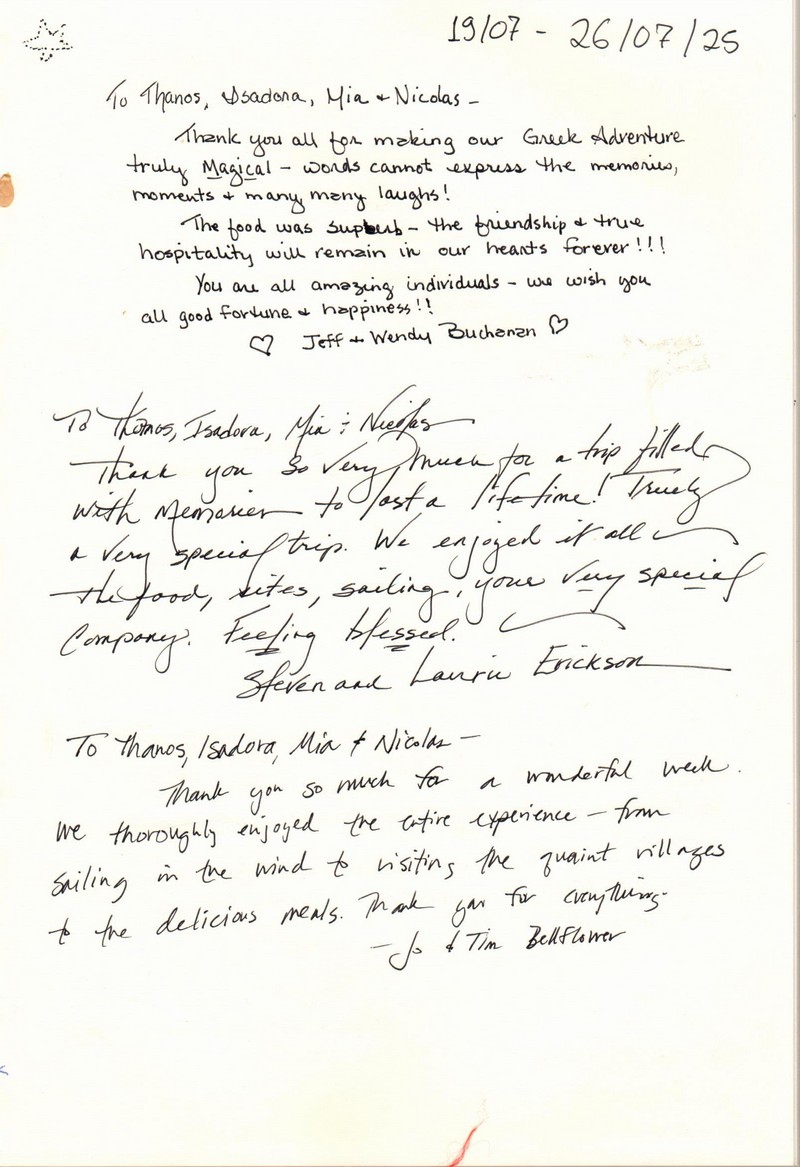 19/07 - 26/07/25
To Thanos, Isadora, Mia + Nicolas -
Thank you all for making our Greek Adventure
truly Magical - words cannot express the memories,
moments + many, many laughs!
The food was superb - the friendship + true
hospitality will remain in our hearts forever!!!
You are all amazing individuals - we wish you
all good fortune + happiness!!
♡ Jeff + Wendy Buchanan ♡
To Thanos, Isadora, Mia + Nicolas
Thank you so very much for a trip filled
with memories to last a lifetime! Truly
a very special trip. We enjoyed it all -
the food, sites, sailing, your very special
Company. Feeling blessed.
Steven and Laurie Erickson
To Thanos, Isadora, Mia & Nicolas -
Thank you so much for a wonderful week.
We thoroughly enjoyed the entire experience - from
sailing in the wind to visiting the quaint villages
to the delicious meals. Thank you for everything.
- Jo & Tim Bellflower